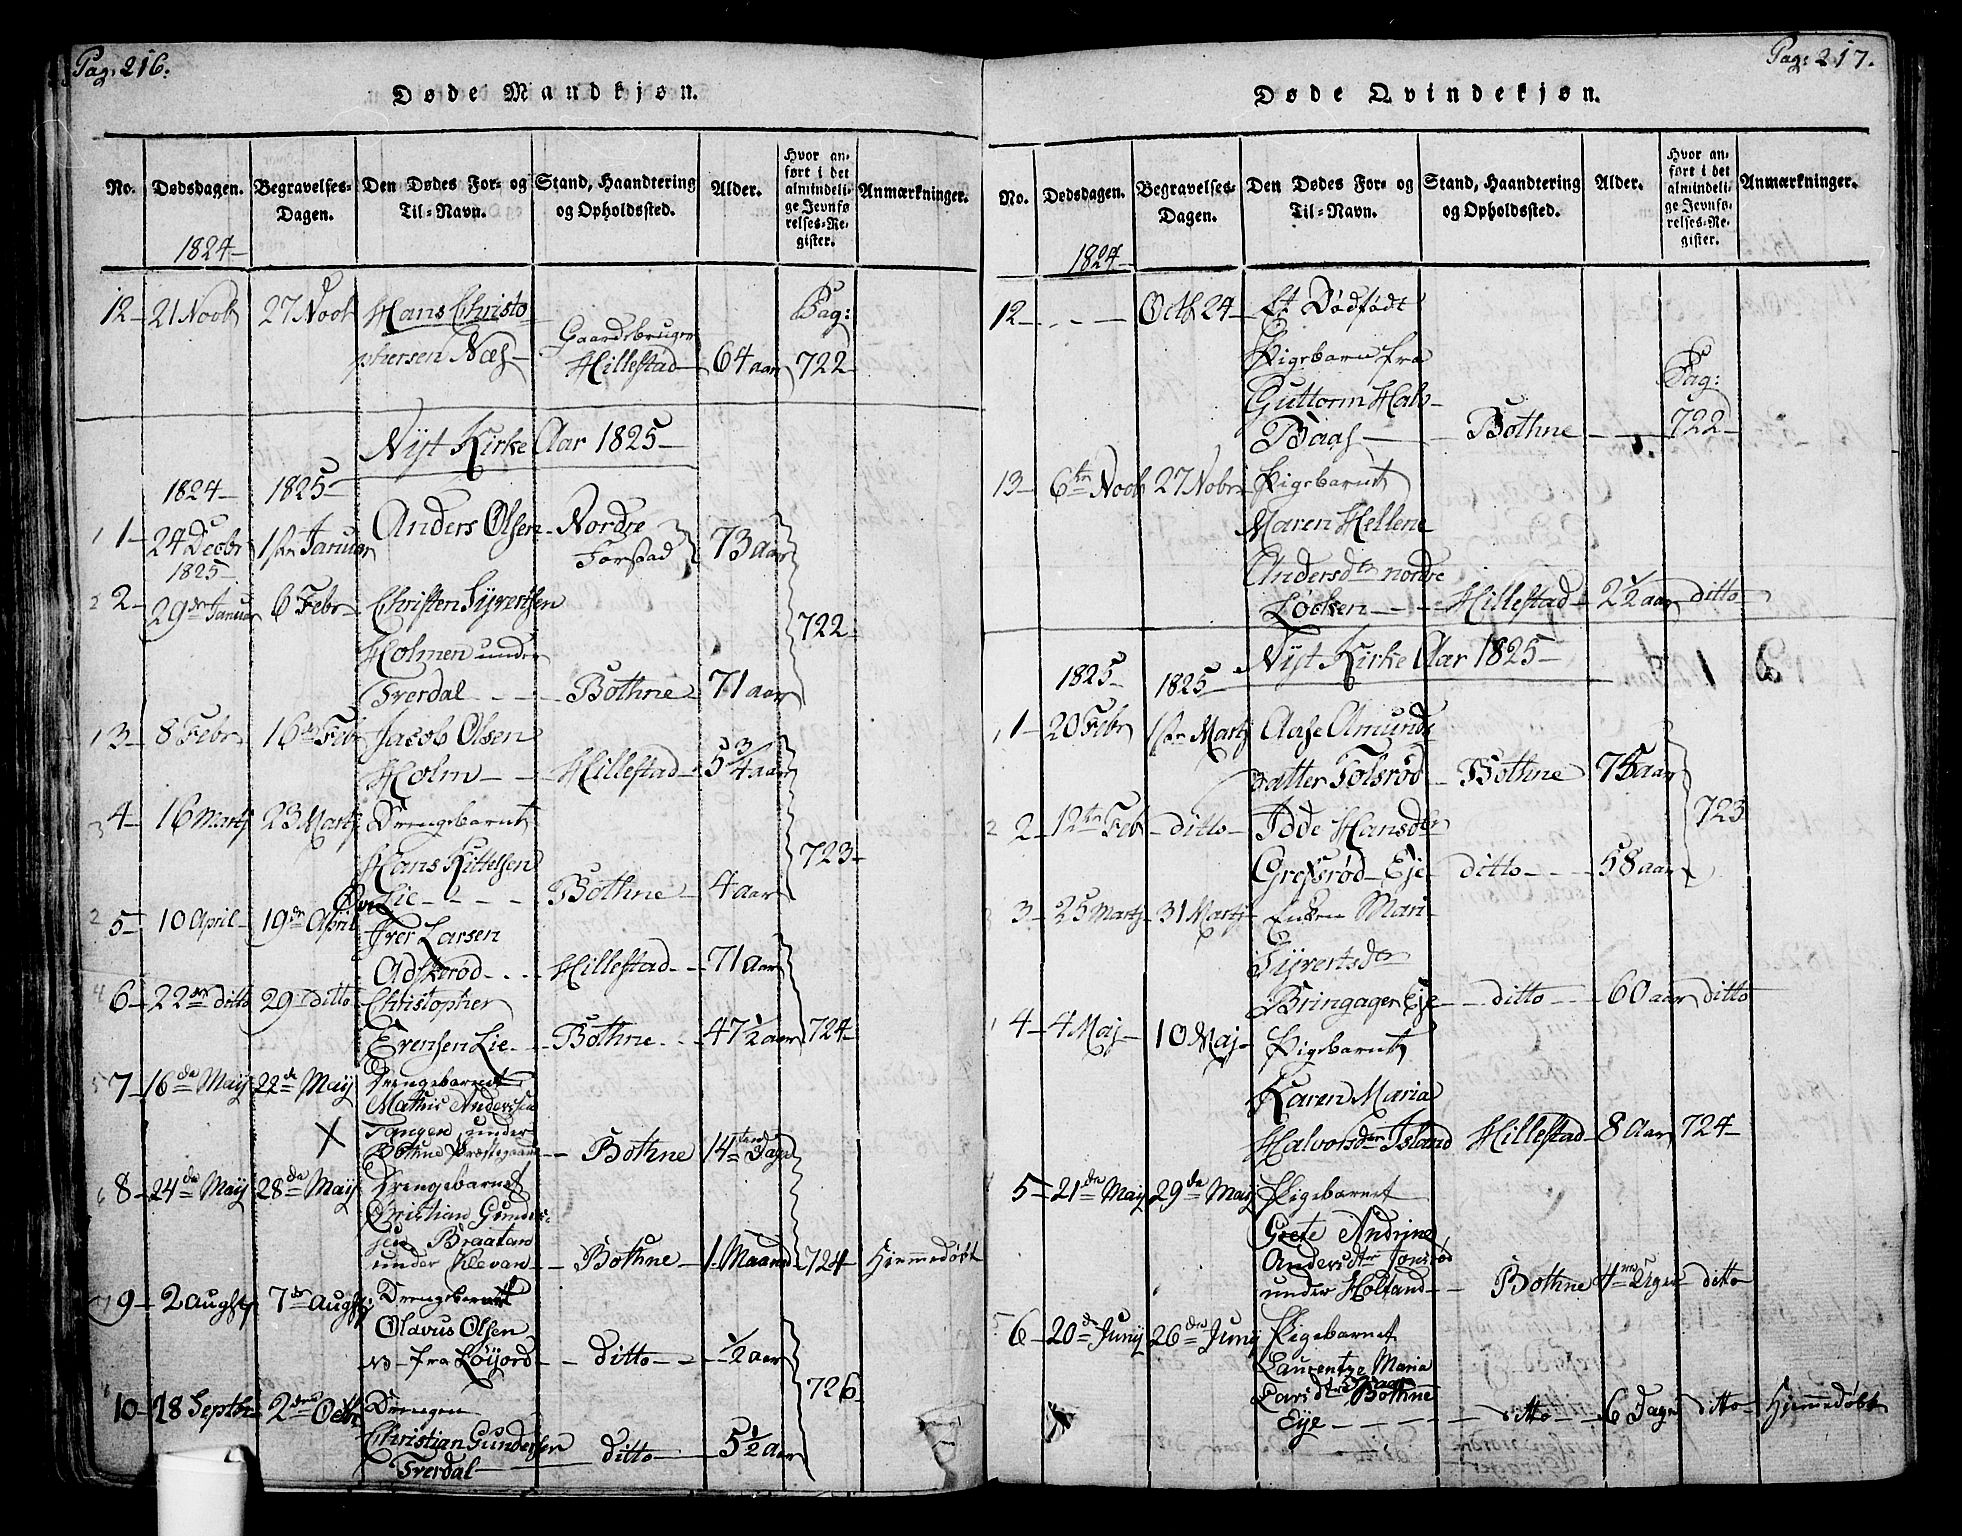 Pag. 216.
Døde Mandkjøn.
No.
Dødsdagen.
1824
Begravelses-
Dagen.
Den Dødes For- og
Til-Navn.
Stand, Haandtering
og Opholdssted.
Alder.
Hvor an-
ført i det
almindeli-
ge Jevnfø-
relses-Re-
gister.
Anmærkninger.
12 21 Novb 27 Novb Hans Christo
phersen Næs Gaardsbruger
Hillestad 64 aar Pag:
722
Nyt Kirke Aar 1825
1824 1825
1 1 24 Decbr 1ste Januar Anders Olsen Nordre
Forstad 73 aar
1825
2 2 29de Januar 6 Febr Christen Syvertsen
Holmen under
Frerdal Bothne 71 aar 722
1 3 8 Febr 16de Febr Jacob Olsen
Holm Hillestad 5 3/4 aar
3 4 16 Martj 23 Martj Drengebarnet
Hans Kittelsen
Lie Bothne 4 aar 723
2 5 10 April 19de April Iver Larsen
Adskerød Hillestad 71 aar
4 6 22de ditto 29 ditto Christopher
Evensen Lie Bothne 47 1/2 aar 724
5 7 16de May 22de May Drengebarnet
Mathis Andersen
Tangen under
Bothne Præstegaard Bothne 14ten Dage
6 8 24de May 28de May Drengebarnet
Christian Gunders-
sen Braatan
under Klevan Bothne 1 Maaned 724 Hiemmedøbt
7 9 2 Augst 7de Augst Drengebarnet
Olavus Olsen
fra Løijord ditto 1/2 aar
10 28 Septbr 2den Octbr Drengen
Christian Gundersen
Frerdal ditto 5 1/2 Aar 726
Pag: 217.
Døde Qvindekjøn.
No.
Dødsdagen.
1824
Begravelses-
Dagen.
Den Dødes For- og
Til-Navn.
Stand, Haandtering
og Opholdssted.
Alder.
Hvor an-
ført i det
almindeli-
ge Jevnfø-
relses-Re-
gister.
Anmærkninger.
12 Octb 24 Et Dødfødt
Pigebarn fra
Guttorm Halv-
Baas Bothne Pag:
722
13 6te Novb 27 Nobr Pigebarnet
Maren Hellene
Andersdr nordre
Løcken Hillestad 2 1/2 aar ditto
Nyt Kirke Aar 1825
1825 1825
1 1 20 Febr 1ste Martj Aase Amunds
datter Folsrød Bothne 75 aar
2 2 12te Feb ditto Idde Hansdr
Grefsrød Eje ditto 58 aar 723
3 25 Martj 31 Martj Enken Mari
Syvertsdr
Bringager Eje ditto 60 aar ditto
1 4 4 Maj 10 Maj Pigebarnet
Karen Maria
Halvorsdr Island Hillestad 8 Aar 724
5 21de May 29de May Pigebarnet
Grete Andrine
Andersdtr Jonsrød
under Holtand Bothne 4 Uger ditto
5 6 20de Junij 26de Junij Pigebarnet
Laurentze Maria
Larsdtr Bothne
Eye ditto 6 Dage ditto Hiemmedøbt